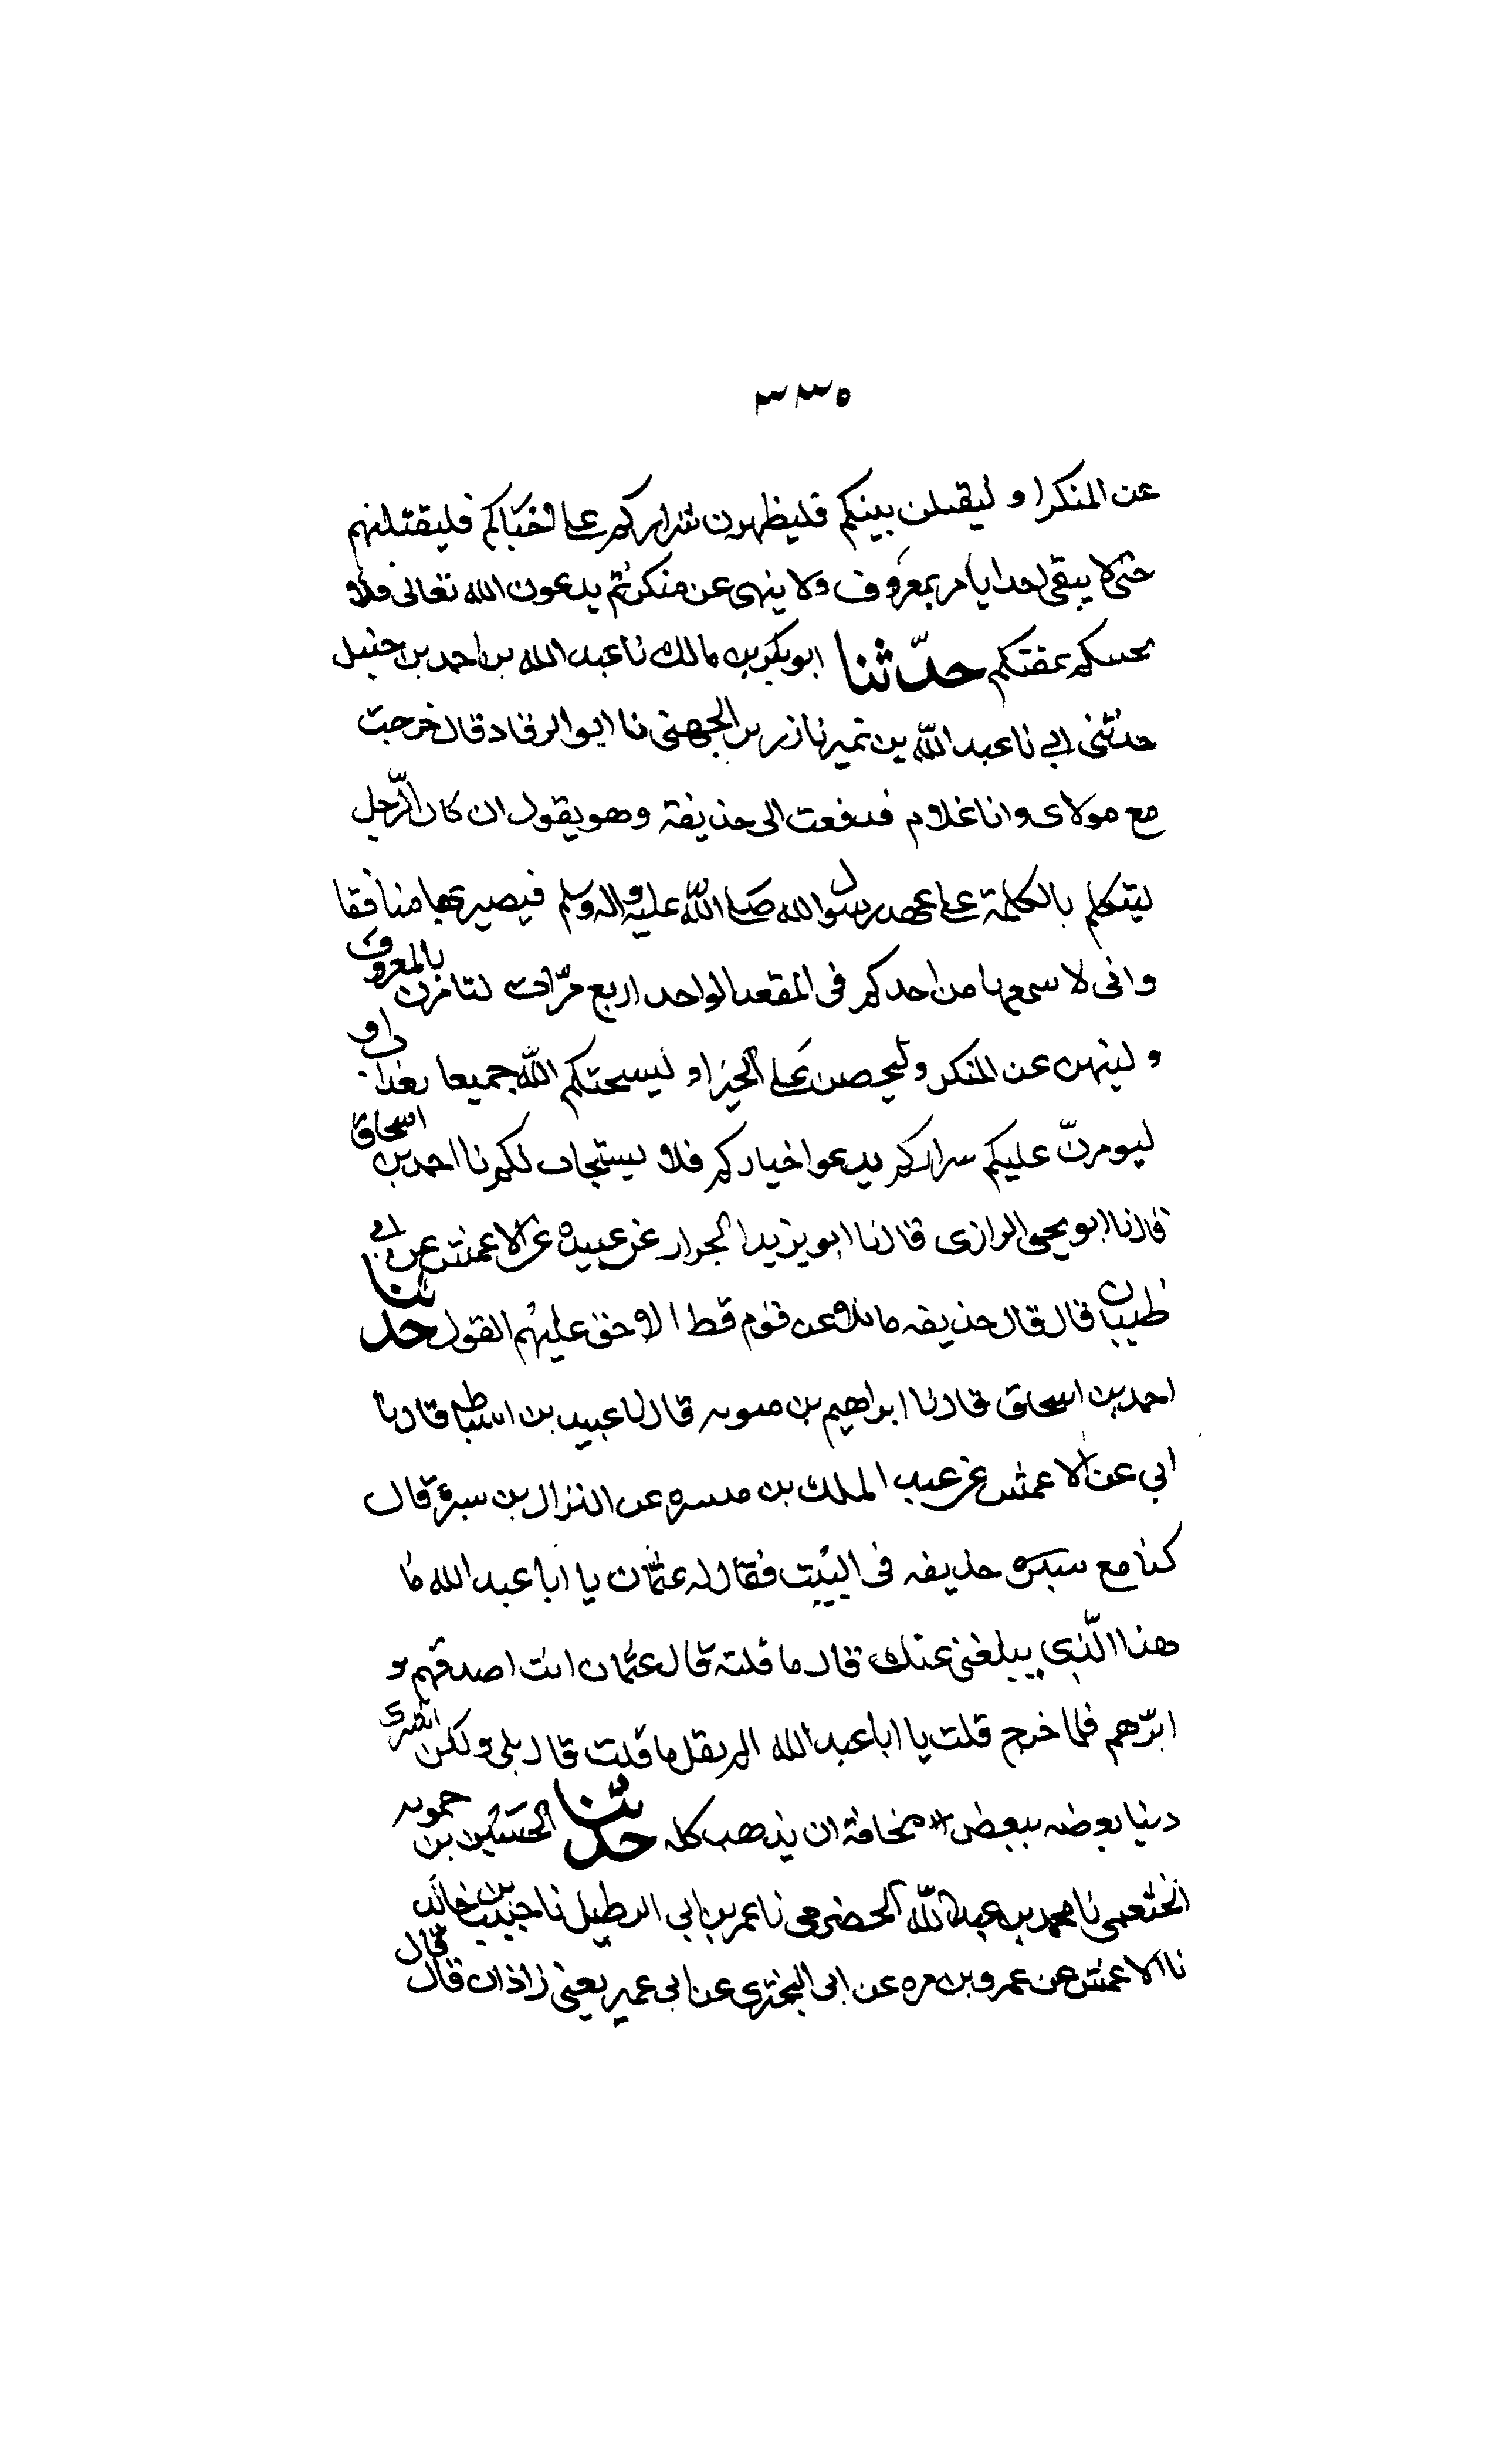 ٣٣٥
عن المنكر او ليقتلن بينكم فليظهرن شراركم على اخياركم فليقتلنهم
حتى لا يبقى احد يامر بمعروف ولا ينهى عن منكر ثم يدعون الله تعالى فلا
بمقتكم حدّثنا ابو بكر بن مالك نا عبد الله بن احمد بن حنبل
حدثنى ابي نا عبد الله بن نمير نا زر بن الجهنى نا ابو الرقاد قال خرجت
مع مولاى وانا غلام فدفعت الى حذيفة وهو يقول ان كان الرّجل
ليتكلم بالكلمة على عهد رسول الله صلى الله عليه واله وسلم فيصير بها منافقا
وانى لاسمعها من احدكم فى المقعد الواحد اربع مرّات لتامرن بالمعروف
ولينهن عن المنكر وليحصن على الخير او ليسحتكم الله جميعا بعذاب او
ليومرنّ عليكم شراركم يدعوا خياركم فلا يستجاب لكم نا احمد بن اسحاق
قال نا ابو يحيى الرازى قال نا ابو يزيد الجرار عن عبيدة عن الاعمش عن ابي
ظبيان قال قال حذيفه ما تلاعن قوم قط الا حق عليهم القول حدثنا
احمد بن اسحاق قال نا ابراهيم بن متويه قال نا عبيد بن اسباط قال نا
ابي عن الاعمش عن عبد الملك بن ميسره عن النزال بن سبرة قال
كنا مع سبره حذيفه فى البيت فقال له عثمان يا ابا عبد الله ما
هذا الّذي يبلغنى عنك قال ما قلته قال عثمان انت اصدقهم و
ابرّهم فلما خرج قلت يا ابا عبد الله الم يقل ما قلت قال بلى ولكن اشترى
دينا بعضه ببعض مخافة ان يذهب كله حدثنا الحسين بن حمويه
الخثعمى نا محمد بن عبد الله الحضرمى نا عمر بن ابى الرطيل نا حبيب بن خالد
نا الاعمش عن عمرو بن مره عن ابى البخترى عن ابى عمير يعنى زاذان قال قال